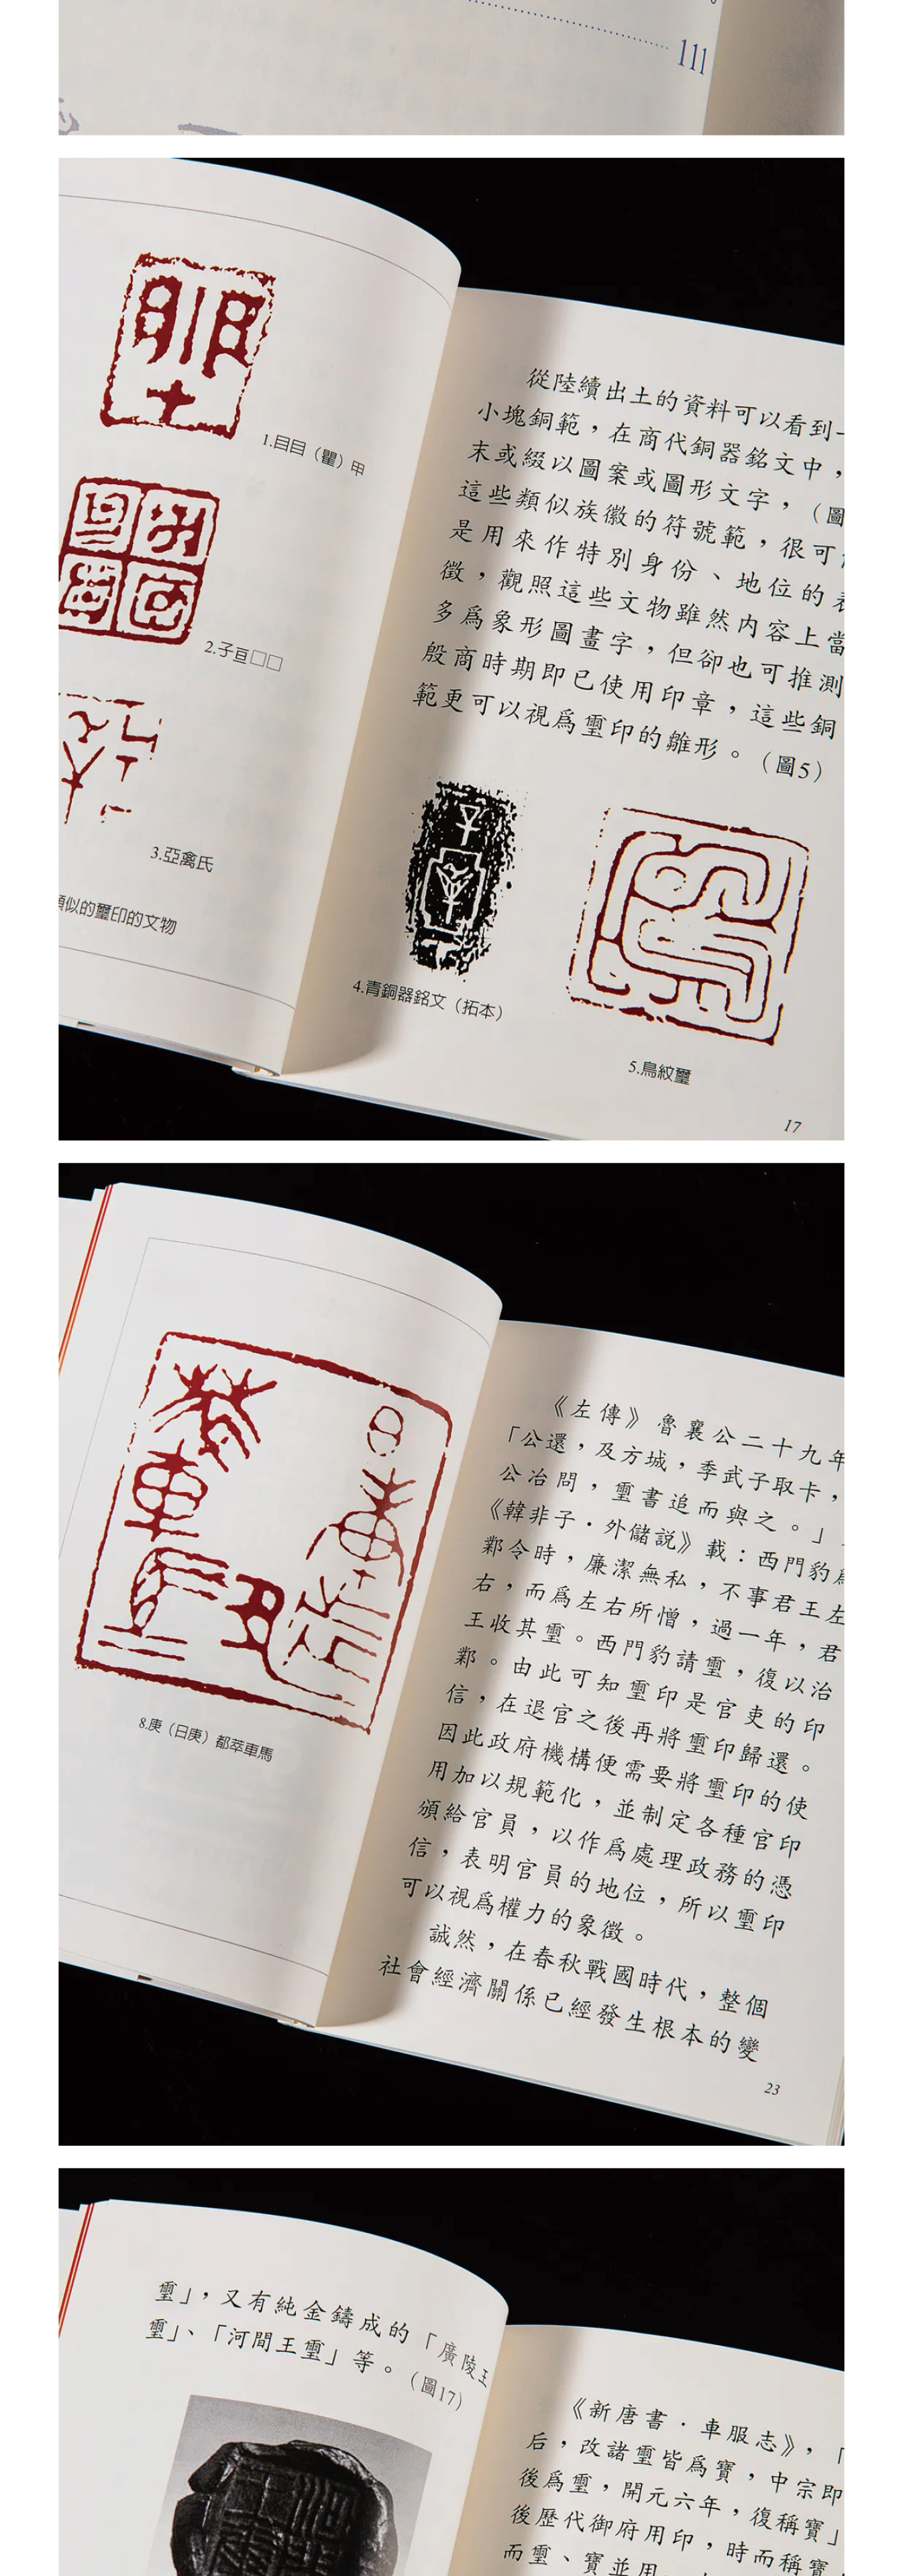 111
1.目目（瞿）甲
2.子亘□□
3.亞禽氏
似的璽印的文物
從陸續出土的資料可以看到
小塊銅範，在商代銅器銘文中，
末或綴以圖案或圖形文字，（圖
這些類似族徽的符號範，很可
是用來作特別身份、地位的
徵，觀照這些文物雖然內容上當
多爲象形圖畫字，但卻也可推測
殷商時期即已使用印章，這些銅
範更可以視爲璽印的雛形。（圖5）
4.青銅器銘文（拓本）
5.鳥紋璽
17
8.庚（日庚）都萃車馬
《左傳》魯襄公二十九年
「公還，及方城，季武子取卡，
公冶問，璽書追而與之。」
《韓非子·外儲說》載：西門豹爲
鄴令時，廉潔無私，不事君王左
右，而爲左右所憎，過一年，君
王收其璽。西門豹請璽，復以治
鄴。由此可知璽印是官吏的印
信，在退官之後再將璽印歸還。
因此政府機構便需要將璽印的使
用加以規範化，並制定各種官印
頒給官員，以作爲處理政務的憑
信，表明官員的地位，所以璽印
可以視爲權力的象徵。
誠然，在春秋戰國時代，整個
社會經濟關係已經發生根本的變
23
璽」，又有純金鑄成的「廣陵王
璽」、「河間王璽」等。（圖17）
《新唐書·車服志》，「
后，改諸璽皆爲寶，中宗即
後爲璽，開元六年，復稱寶」
後歷代御府用印，時而稱寶
而璽、寶並用